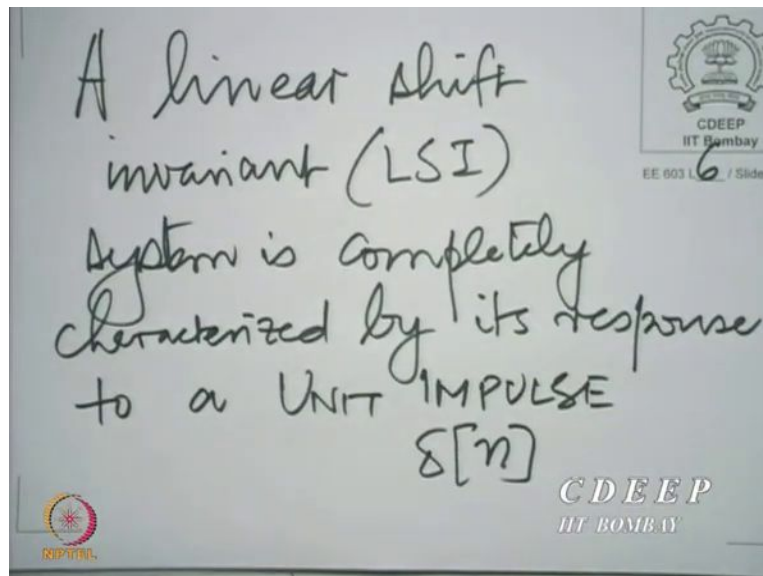 A linear shift
invariant (LSI)
system is completely
characterized by its response
to a UNIT IMPULSE
δ[n]
CDEEP
IIT Bombay
EE 603 L 6 / Slide
CDEEP
IIT BOMBAY
NPTEL